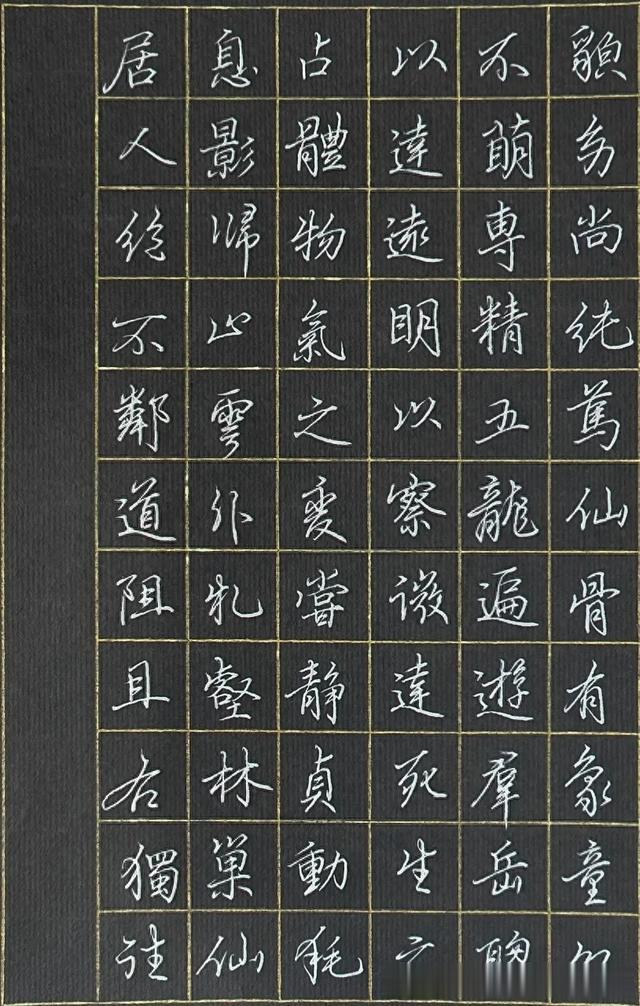 幼尚純篤仙骨有象童心
不萌專精五龍遍遊羣岳聰
以達遠明以察微達死生之
占體物氣之變嘗靜貞動耗
息影歸止雲外札壑林巢仙
居人絶不鄰道阻且右獨往